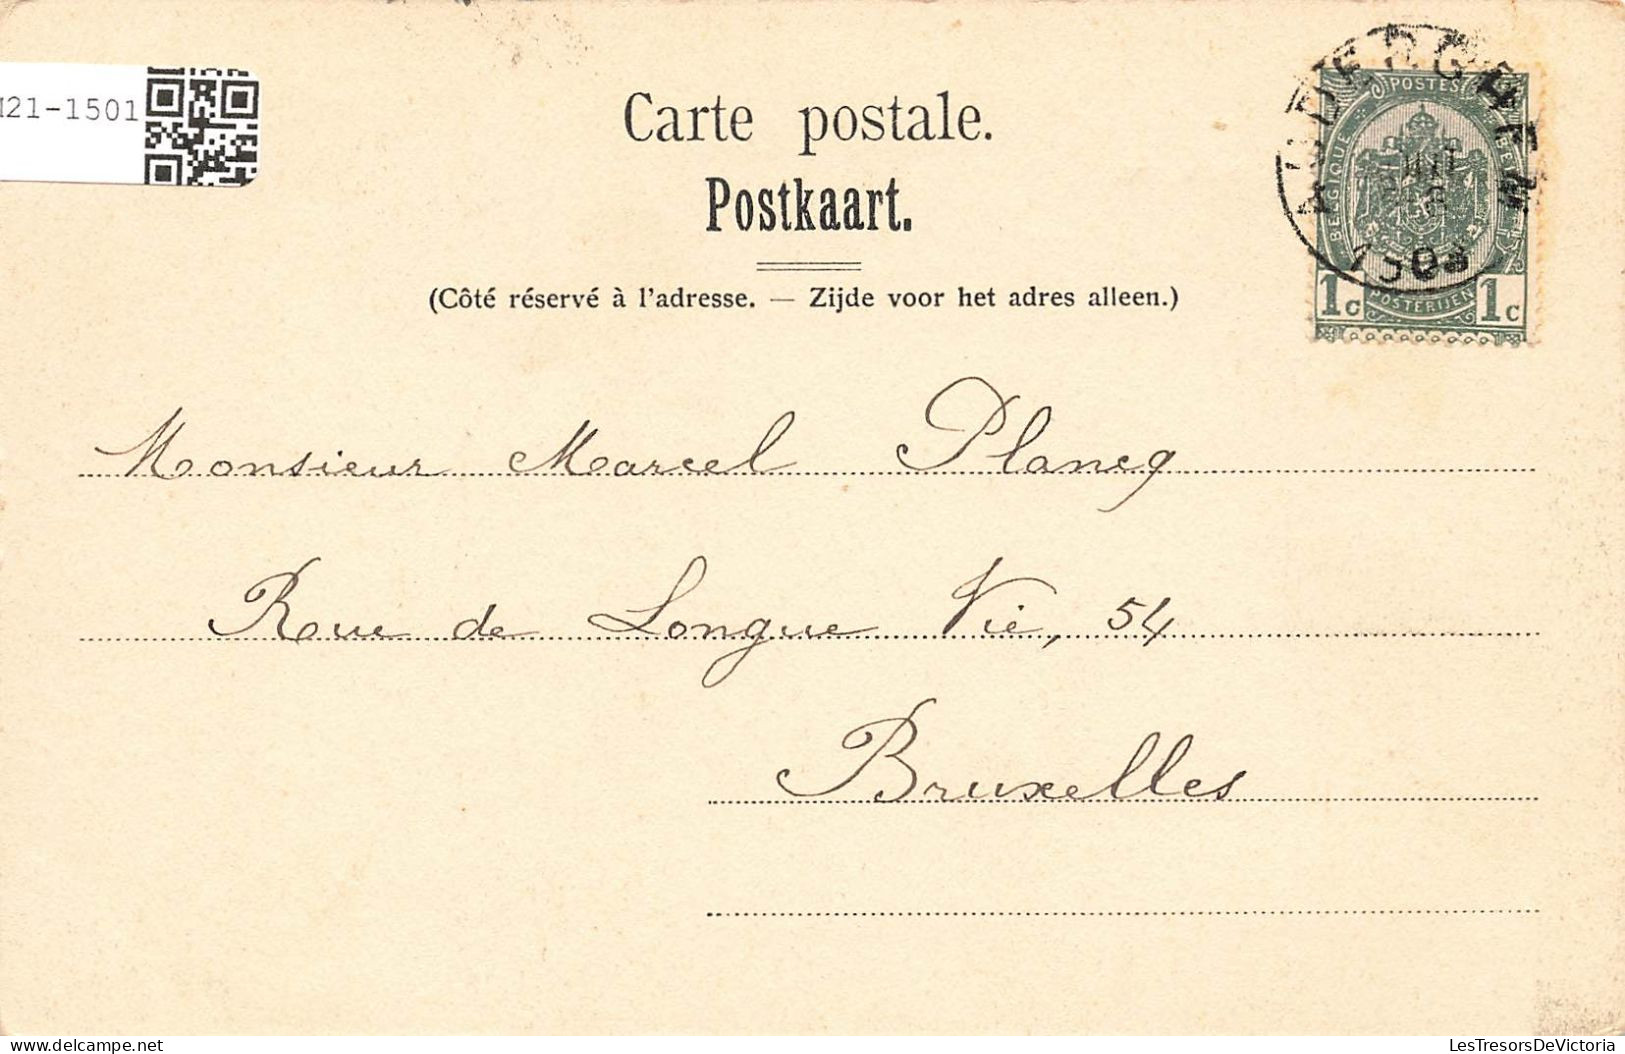 21-1501
Carte postale.
Postkaart.
(Côté réservé à l'adresse. — Zijde voor het adres alleen.)
AUDERGHEM
POSTES
BELGIQUE BELGIE
1903
1c POSTERIJEN 1c
Monsieur Marcel Plancq
Rue de Longue Vie, 54
Bruxelles
LesTresorsDeVictoria
delcampe.net